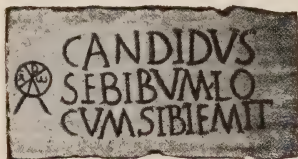 CANDIDVS
SEBIBVM·LO
CVMSIBIEMIT